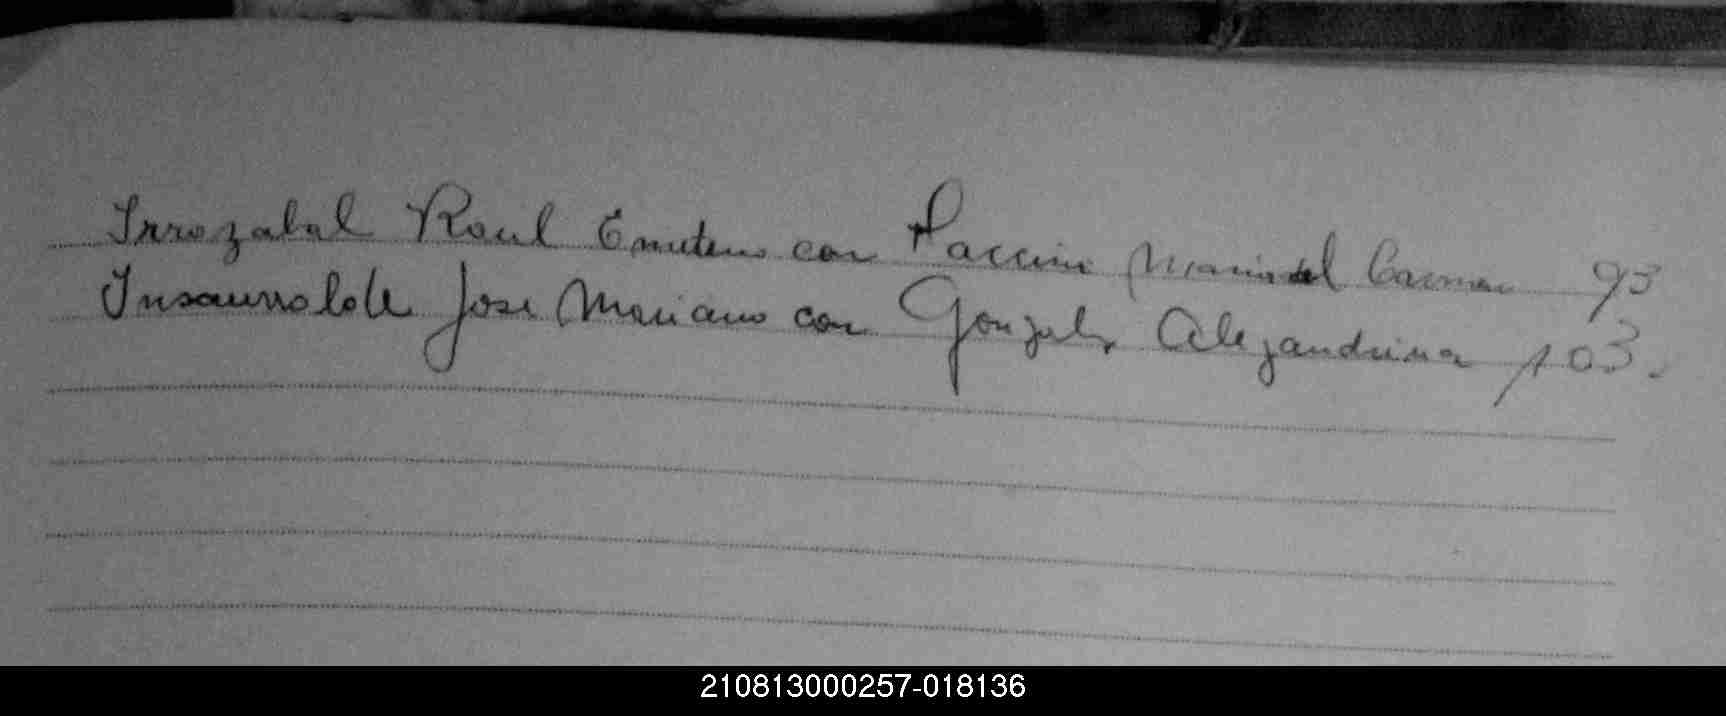 Irrazabal Raul Emeterio con Paccini Maria del Carmen 93
Insaurralde Jose Mariano con Gonzalez Alejandrina 103.
210813000257-018136